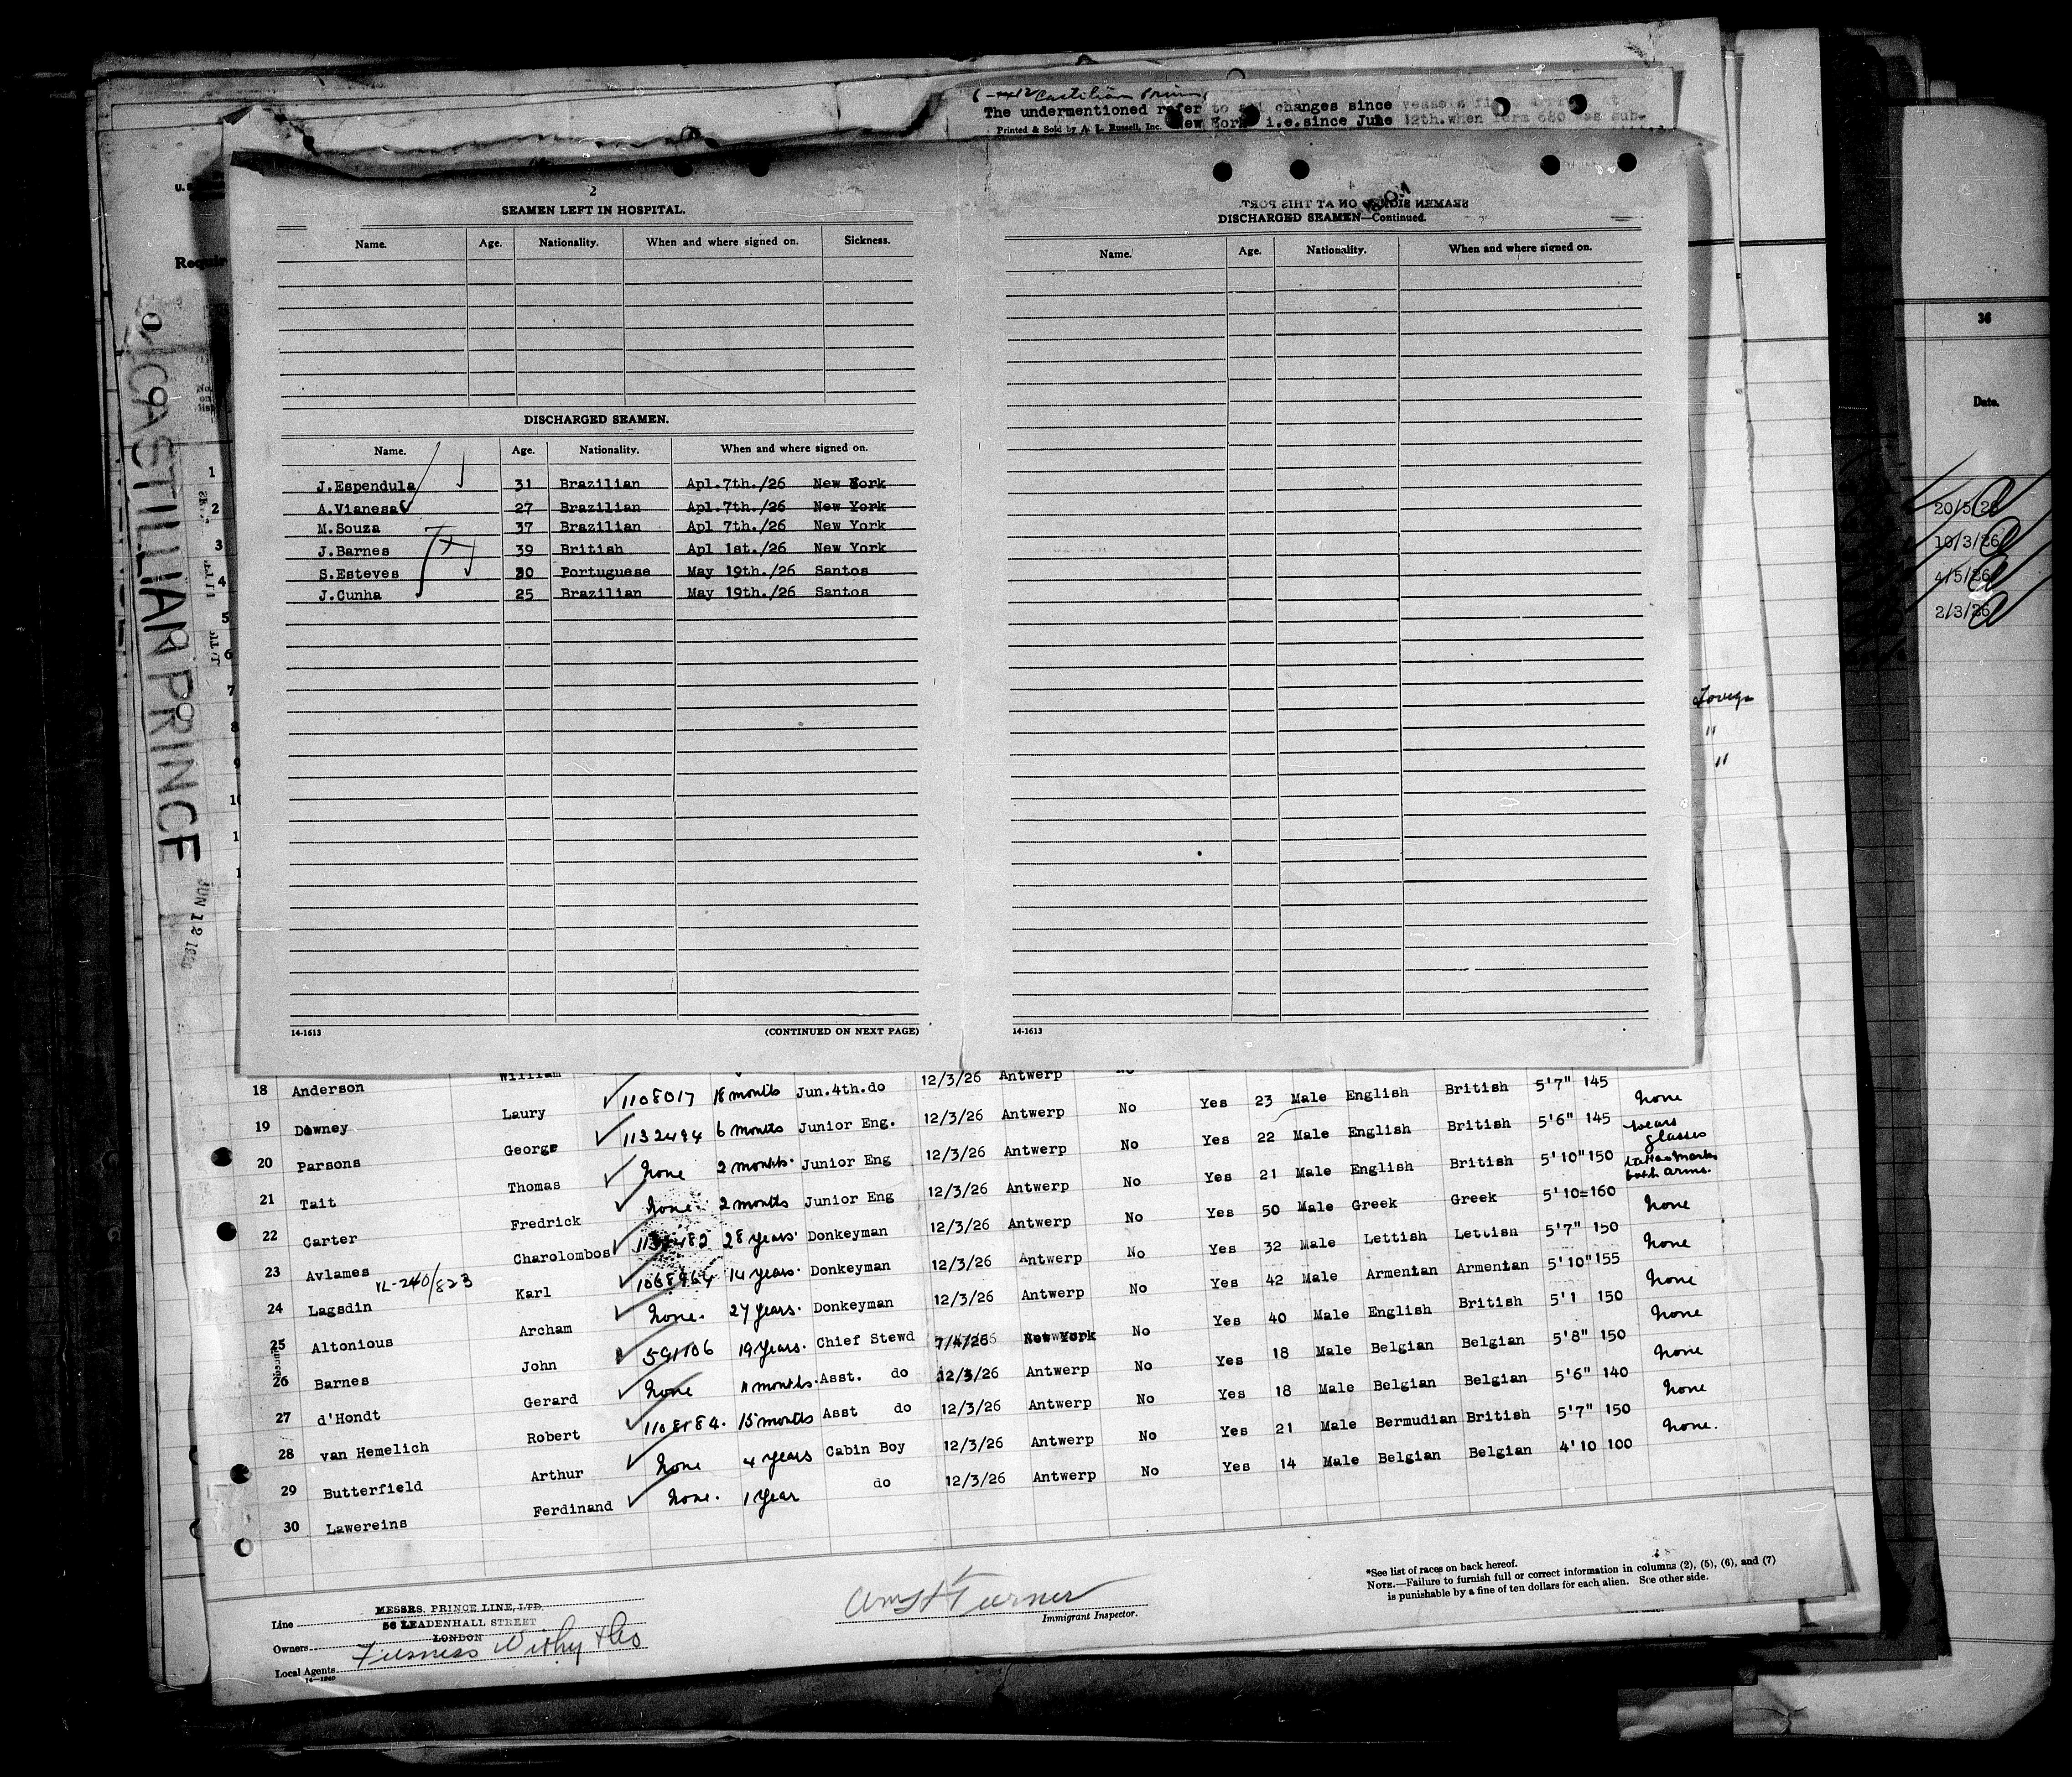 Castilian Prince
The undermentioned refer to all changes since vessels first
Printed & Sold by A. L. Russell, Inc. New York i.e.since June 12th.when Form 680 was sub-
CASTILLIAN PRINCE
JUN 12
2
SEAMEN LEFT IN HOSPITAL.
Name. Age. Nationality. When and where signed on. Sickness.
DISCHARGED SEAMEN.
Name. Age. Nationality. When and where signed on.
J.Espendula 31 Brazilian Apl.7th./26 New York
A.Vianesa 27 Brazilian Apl.7th./26 New York
M.Souza 37 Brazilian Apl 7th./26 New York
J.Barnes 39 British Apl 1st./26 New York
S.Esteves 30 Portuguese May 19th./26 Santos
J.Cunha 25 Brazilian May 19th./26 Santos
14-1613 (CONTINUED ON NEXT PAGE)
SEAMEN SIGNED ON AT THIS PORT.
DISCHARGED SEAMEN—Continued.
Name. Age. Nationality. When and where signed on.
14-1613
36
Date.
20/5/26
10/3/26
4/5/26
2/3/26
18 Anderson William 1108017 18 months Jun.4th.do 12/3/26 Antwerp No Yes 23 Male English British 5'7" 145 None
19 Downey Laury 1132494 6 months Junior Eng. 12/3/26 Antwerp No Yes 22 Male English British 5'6" 145 wears glasses
20 Parsons George None 2 months. Junior Eng 12/3/26 Antwerp No Yes 21 Male English British 5'10" 150 tattoo marks both arms.
21 Tait Thomas None. 2 months Junior Eng 12/3/26 Antwerp No Yes 50 Male Greek Greek 5'10= 160 None
22 Carter Fredrick 28 Years. Donkeyman 12/3/26 Antwerp No Yes 32 Male Lettish Lettish 5'7" 150 None
23 Avlames Charolombos 1068964 14 years. Donkeyman 12/3/26 Antwerp No Yes 42 Male Armenian Armenian 5'10" 155 None
24 Lagsdin Karl None. 27 years. Donkeyman 12/3/26 Antwerp No Yes 40 Male English British 5'1 150 None
25 Altonious Archam 591106 19 Years. Chief Stewd 7/4/26 New York No Yes 18 Male Belgian Belgian 5'8" 150 None
26 Barnes John None 11 months. Asst. do 12/3/26 Antwerp No Yes 18 Male Belgian Belgian 5'6" 140 None
27 d'Hondt Gerard 15 months Asst do 12/3/26 Antwerp No Yes 21 Male Bermudian British 5'7" 150 None.
28 van Hemelich Robert None 4 years Cabin Boy 12/3/26 Antwerp No Yes 14 Male Belgian Belgian 4'10 100
29 Butterfield Arthur None. 1 Year do 12/3/26 Antwerp
30 Lawereins Ferdinand
*See list of races on back hereof.
NOTE.—Failure to furnish full or correct information in columns (2), (5), (6), and (7)
is punishable by a fine of ten dollars for each alien. See other side.
Turner
Immigrant Inspector.
Line MESSRS. PRINCE LINE, LTD.
56 LEADENHALL STREET
Owners LONDON
Local Agents Furness Withy & Co